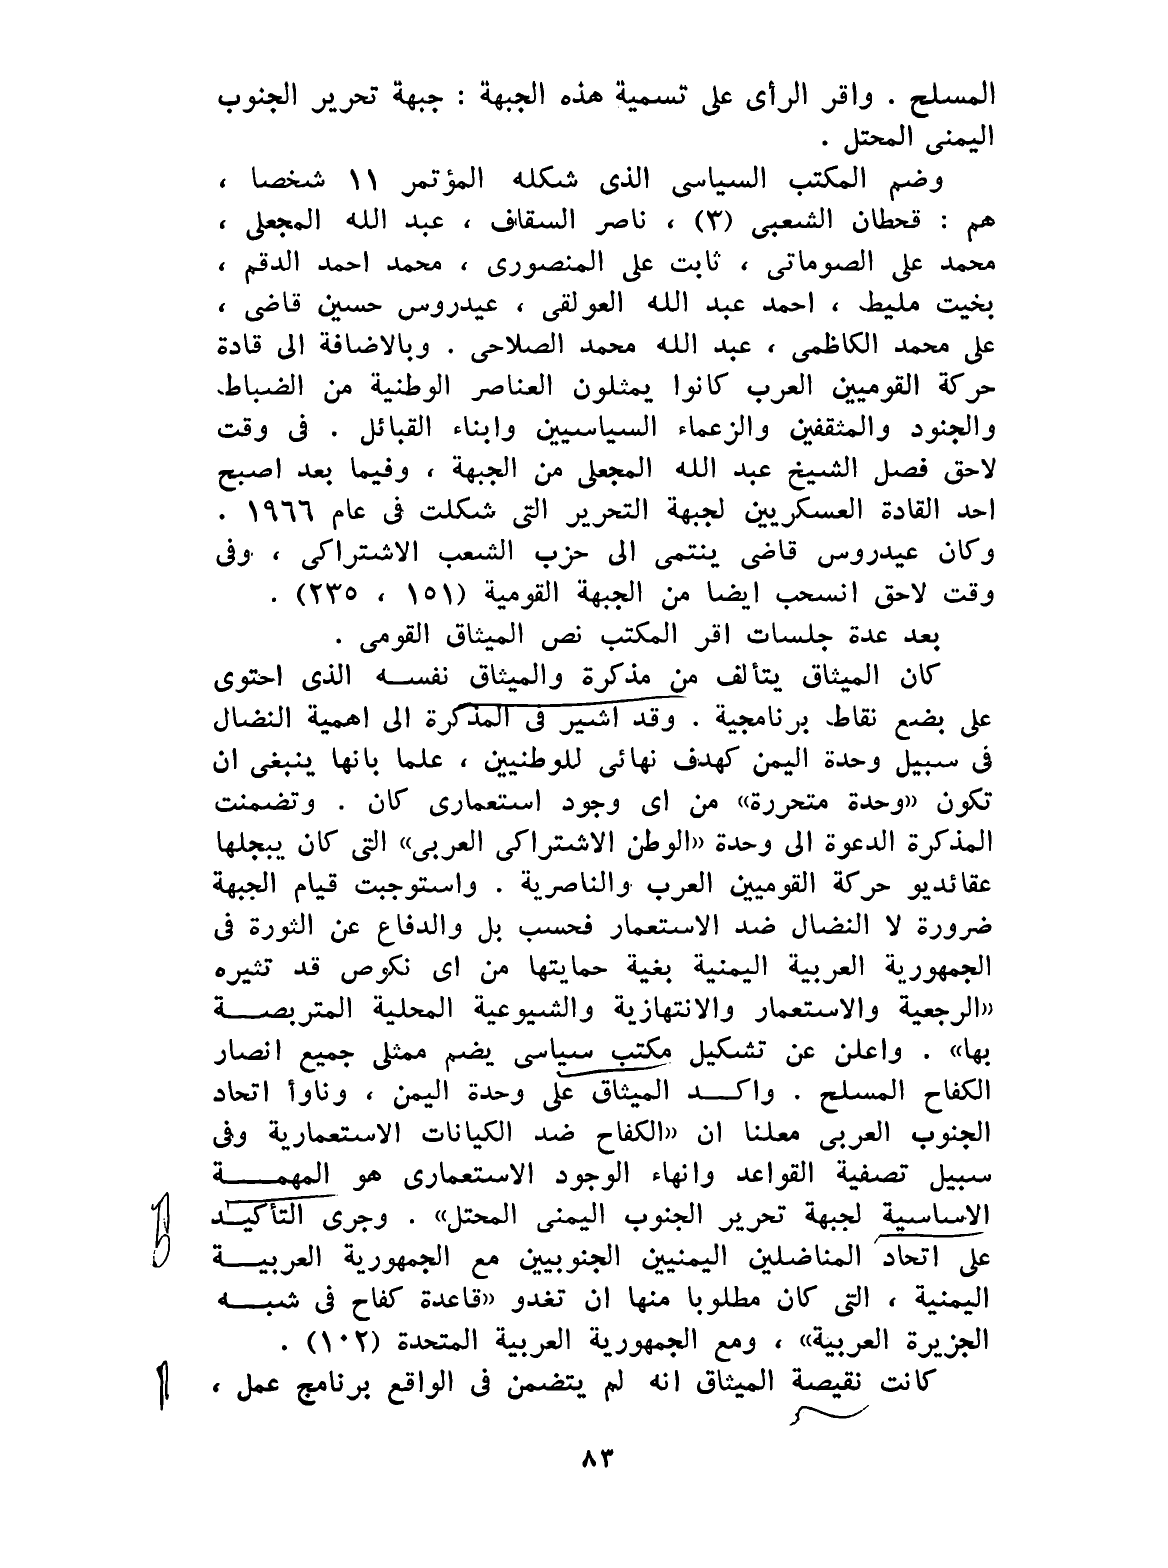 المسلح . واقر الرأى على تسمية هذه الجبهة : جبهة تحرير الجنوب
اليمنى المحتل .
وضم المكتب السياسى الذى شكله المؤتمر ١١ شخصا ،
هم : قحطان الشعبى (٣) ، ناصر السقاف ، عبد الله المجعلى ،
محمد على الصوماتى ، ثابت على المنصورى ، محمد احمد الدقم ،
بخيت مليط ، احمد عبد الله العولقى ، عيدروس حسين قاضى ،
على محمد الكاظمى ، عبد الله محمد الصلاحى . وبالاضافة الى قادة
حركة القوميين العرب كانوا يمثلون العناصر الوطنية من الضباط
والجنود والمثقفين والزعماء السياسيين وابناء القبائل . فى وقت
لاحق فصل الشيخ عبد الله المجعلى من الجبهة ، وفيما بعد اصبح
احد القادة العسكريين لجبهة التحرير التى شكلت فى عام ١٩٦٦ .
وكان عيدروس قاضى ينتمى الى حزب الشعب الاشتراكى ، وفى
وقت لاحق انسحب ايضا من الجبهة القومية (١٥١ ، ٢٣٥) .
بعد عدة جلسات اقر المكتب نص الميثاق القومى .
كان الميثاق يتألف من مذكرة والميثاق نفسـه الذى احتوى
على بضع نقاط برنامجية . وقد اشير فى المذكرة الى اهمية النضال
فى سبيل وحدة اليمن كهدف نهائى للوطنيين ، علما بانها ينبغى ان
تكون «وحدة متحررة» من اى وجود استعمارى كان . وتضمنت
المذكرة الدعوة الى وحدة «الوطن الاشتراكى العربى» التى كان يبجلها
عقائديو حركة القوميين العرب والناصرية . واستوجبت قيام الجبهة
ضرورة لا النضال ضد الاستعمار فحسب بل والدفاع عن الثورة فى
الجمهورية العربية اليمنية بغية حمايتها من اى نكوص قد تثيره
«الرجعية والاستعمار والانتهازية والشيوعية المحلية المتربصــة
بها» . واعلن عن تشكيل مكتب سياسى يضم ممثلى جميع انصار
الكفاح المسلح . واكــد الميثاق على وحدة اليمن ، وناوأ اتحاد
الجنوب العربى معلنا ان «الكفاح ضد الكيانات الاستعمارية وفى
سبيل تصفية القواعد وانهاء الوجود الاستعمارى هو المهمــة
الاساسية لجبهة تحرير الجنوب اليمنى المحتل» . وجرى التأكيـد
على اتحاد المناضلين اليمنيين الجنوبيين مع الجمهورية العربيــة
اليمنية ، التى كان مطلوبا منها ان تغدو «قاعدة كفاح فى شبــه
الجزيرة العربية» ، ومع الجمهورية العربية المتحدة (١٠٢) .
كانت نقيصة الميثاق انه لم يتضمن فى الواقع برنامج عمل ،
٨٣